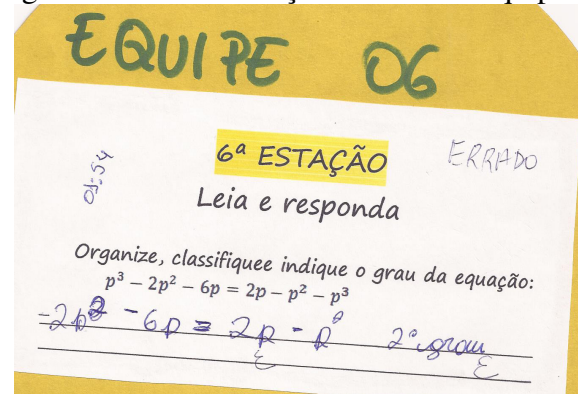 EQUIPE 06
6ª ESTAÇÃO
ERRADO
03:54
Leia e responda
Organize, classifiquee indique o grau da equação:
p³ − 2p² − 6p = 2p − p² − p³
-2p² - 6p = 2p - p² 2º grau